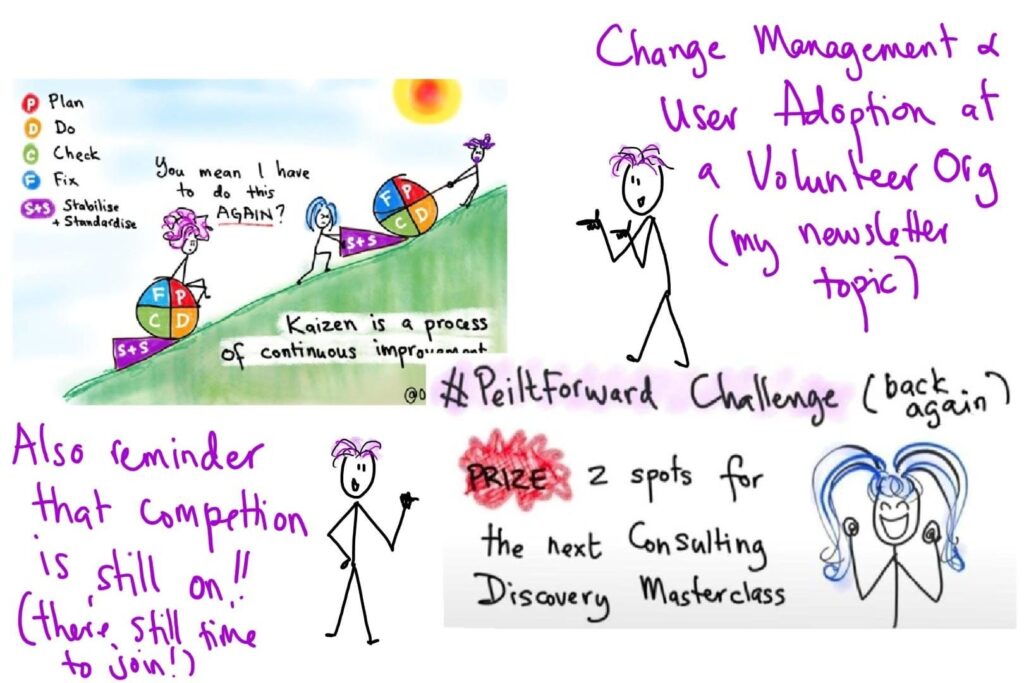 P Plan
D Do
C Check
F Fix
S+S Stabilise
+ Standardise
You mean I have
to do this
AGAIN?
S+S
F P
C D
F P
C D
S+S
Kaizen is a process
of continuous improvement
@D
Change Management &
User Adoption at
a Volunteer Org
(my newsletter
topic)
#PeiltForward Challenge (back
again)
PRIZE 2 spots for
the next Consulting
Discovery Masterclass
Also reminder
that competion
is still on!!
(there still time
to join!)